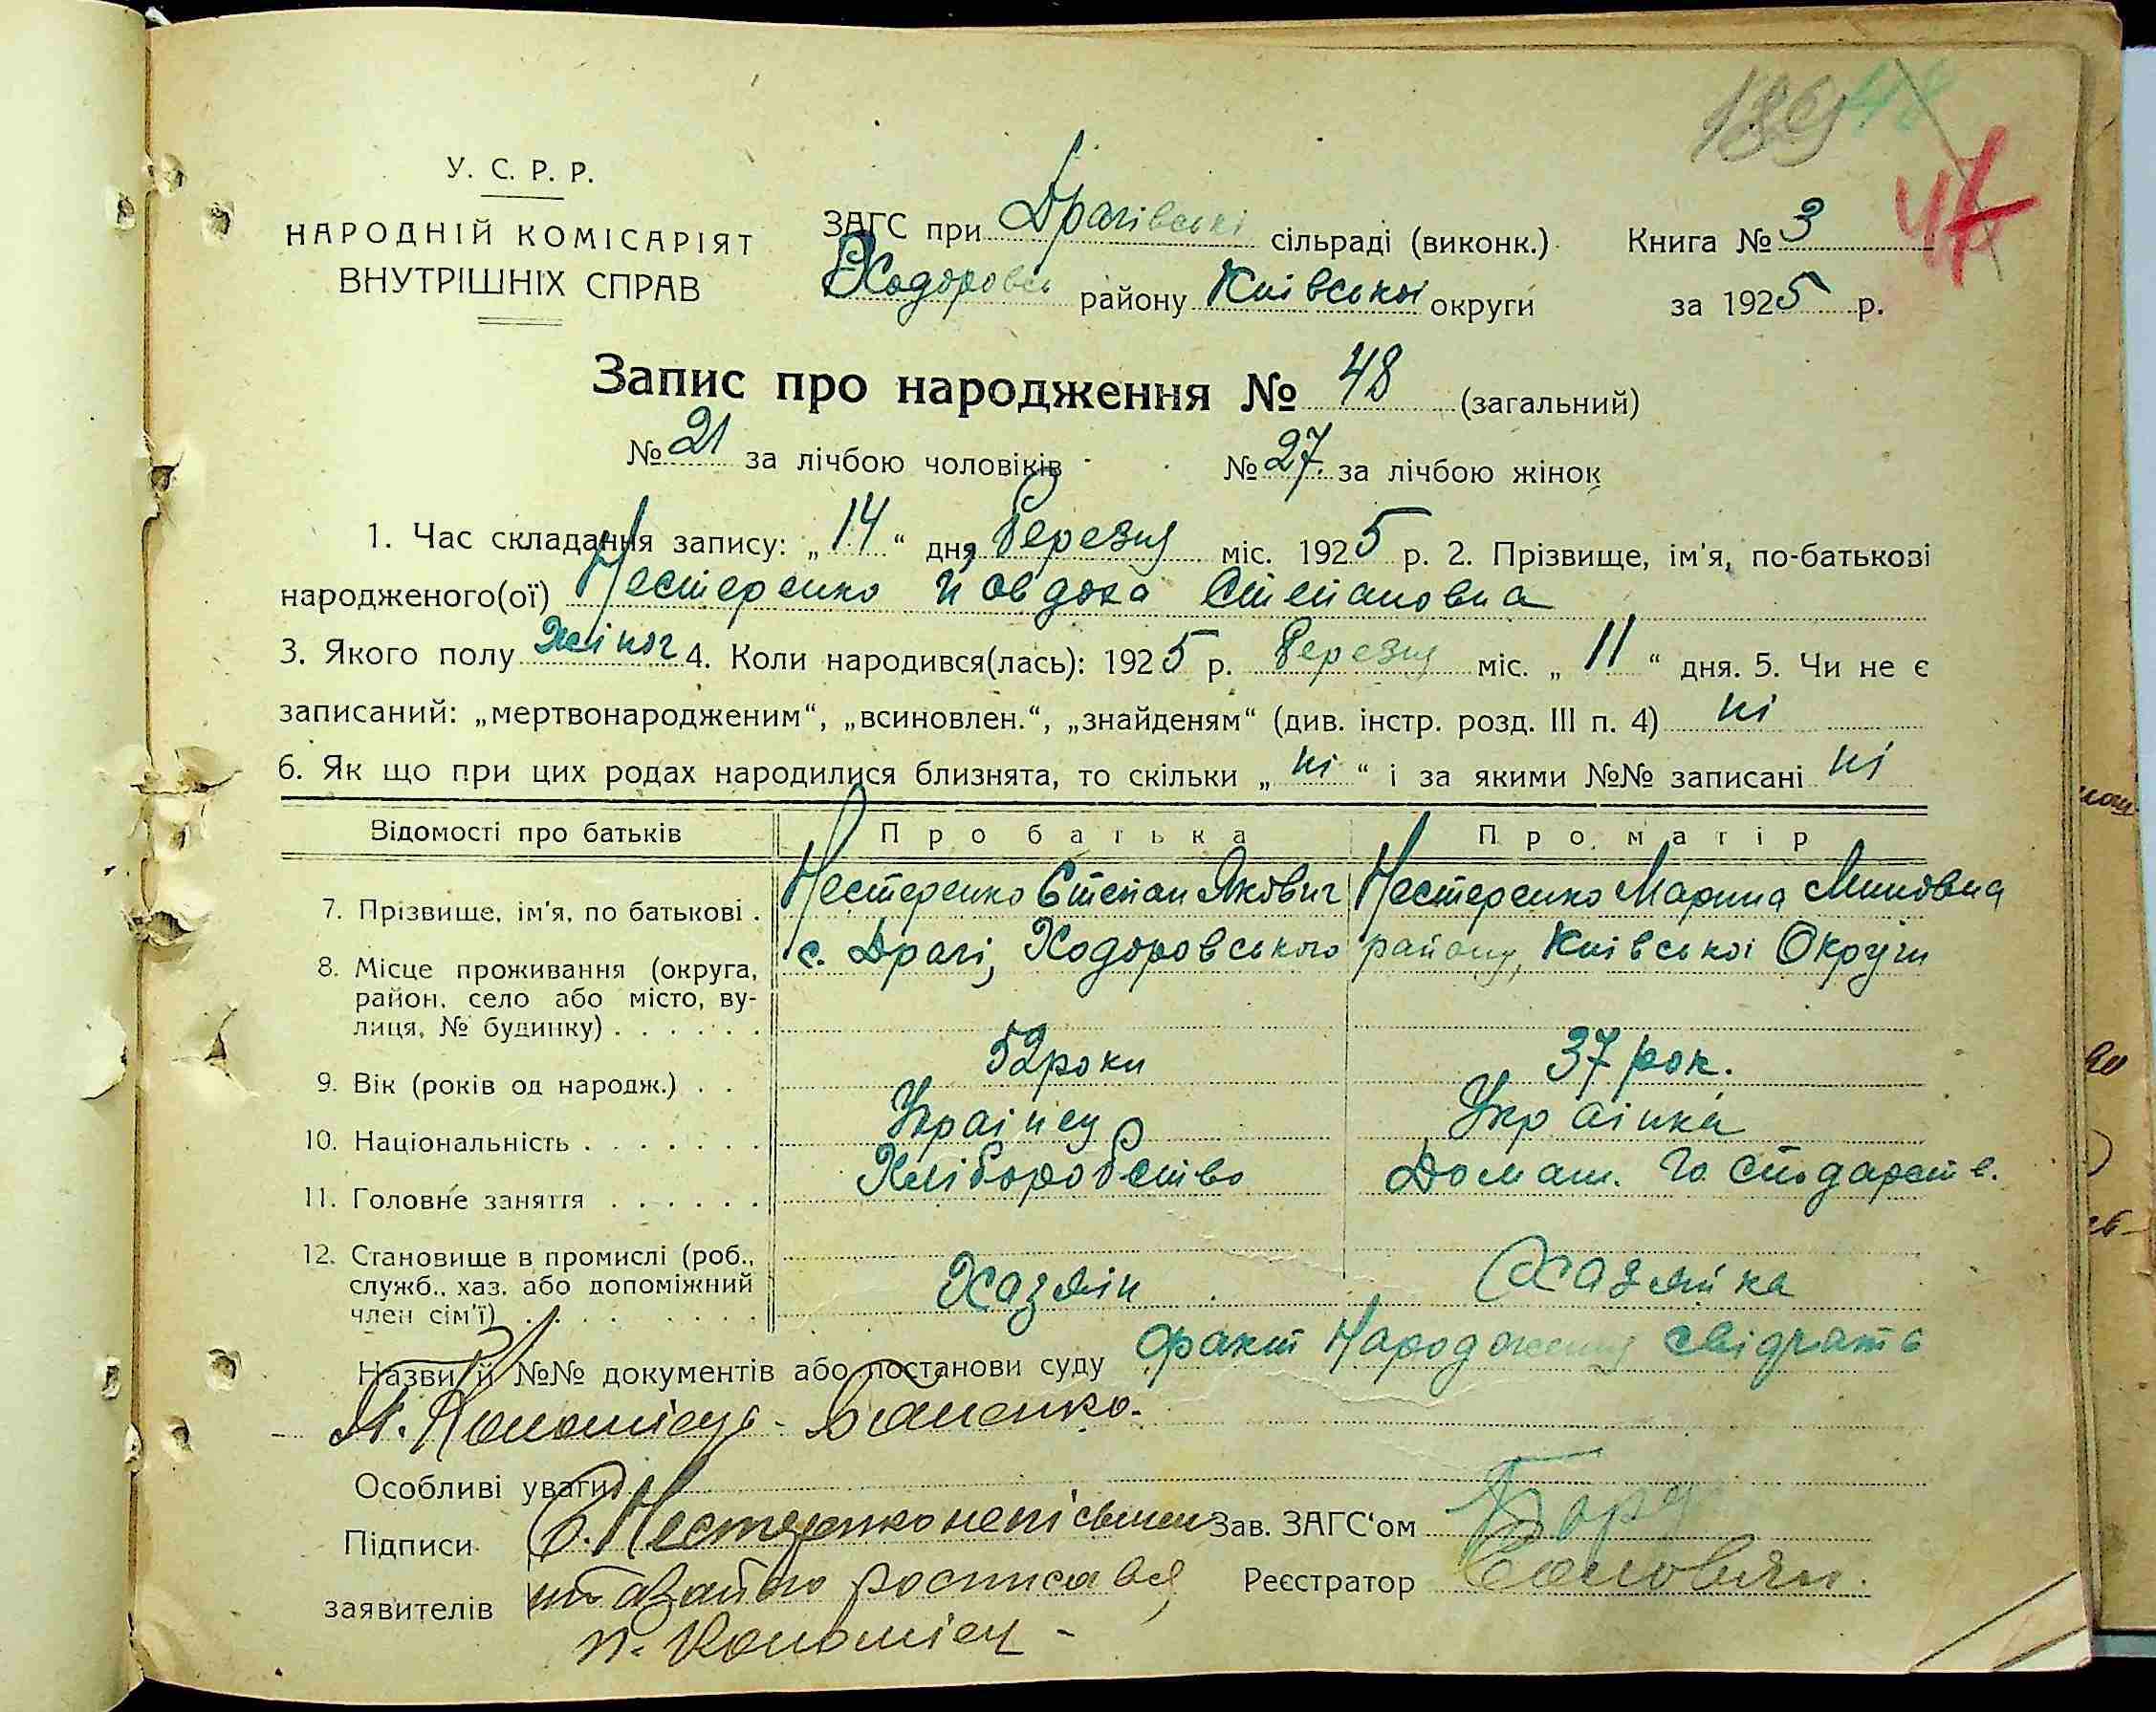 189 48
47
У. С. Р. Р.
НАРОДНІЙ КОМІСАРІЯТ
ВНУТРІШНІХ СПРАВ
ЗАГС при Драгівські сільраді (виконк.)
Ходоровсь району Київської округи
Книга № 3
за 1925 р.
Запис про народження № 48 (загальний)
№ 21 за лічбою чоловіків № 27 за лічбою жінок
1. Час складання запису: „14“ дня Березня міс. 1925 р. 2. Прізвище, ім'я, по-батькові
народженого(ої) Нестеренко Йовдоха Степановна
3. Якого полу жіноч 4. Коли народився(лась): 1925 р. Березня міс. „11“ дня. 5. Чи не є
записаний: „мертвонародженим“, „всиновлен.“, „знайденям“ (див. інстр. розд. III п. 4) ні
6. Як що при цих родах народилися близнята, то скільки „ні“ і за якими №№ записані ні
Відомості про батьків Про батька Про матір
7. Прізвище, ім'я, по батькові . Нестеренко Степан Якович Нестеренко Марина Миновна
8. Місце проживання (округа, с. Драгі, Ходоровського району, Київської Округи
район, село або місто, ву-
лиця, № будинку) . . . . . .
9. Вік (років од народж.) . . 52 роки 37 рок.
10. Національність . . . . . . . Українец Українка
11. Головне заняття . . . . . . Хліборобство Домаш. Господарств.
12. Становище в промислі (роб.,
служб., хаз. або допоміжний Хазяїн Хазяйка
член сім'ї) . . . . . . . .
Назви й №№ документів або постанови суду Факт Народження свідчать
Коломієць
Особливі уваги
Підписи С. Нестеренко непісьмен Зав. ЗАГС'ом
заявителів росписався Реєстратор
п. Коломієц -